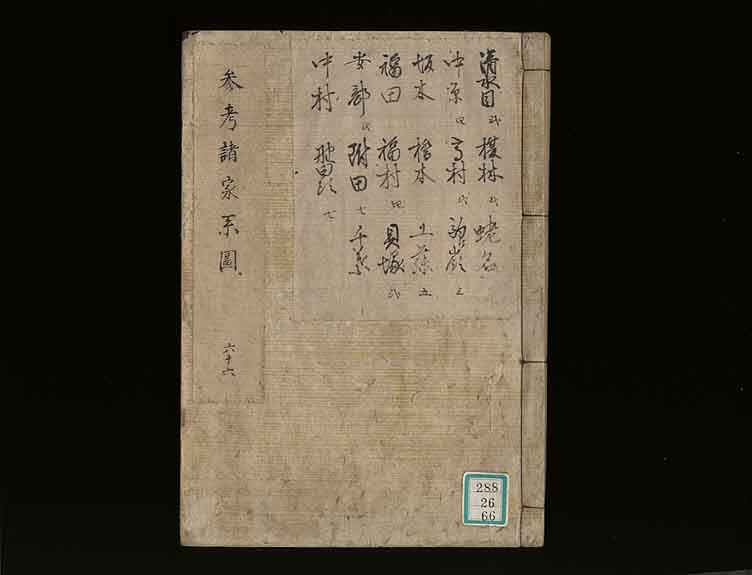 清水目 弐 横林 弐 蛯名
中原 四 高村 弐
坂本 橋本 工藤 五
福田 福村 四 貝塚 弐
安部 弐 附田 七 千葉
中村 七
参考諸家系圖
六十六
288
26
66